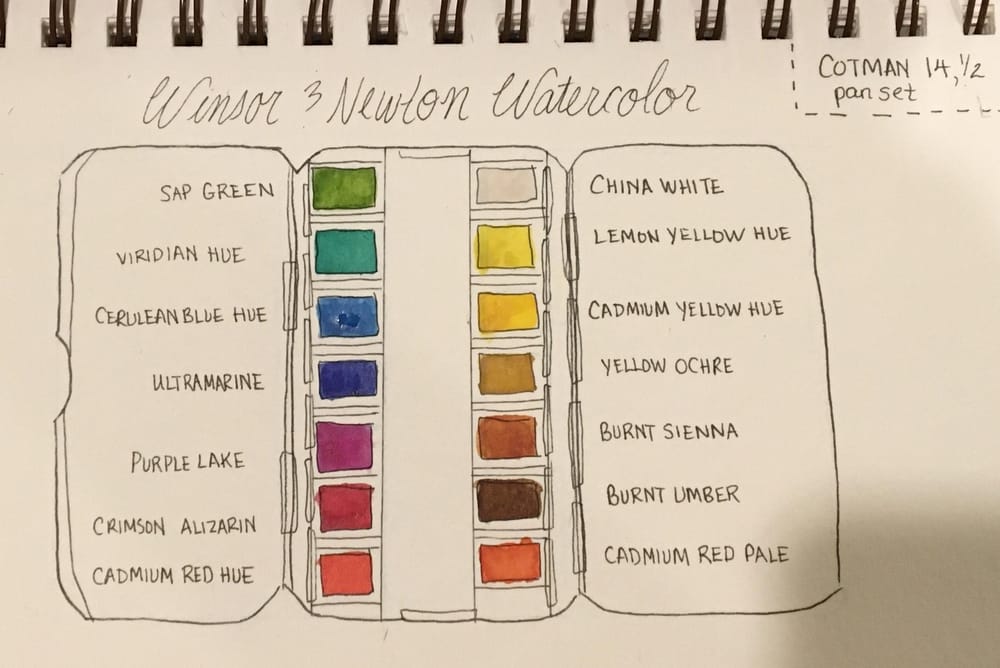 Winsor & Newton Watercolor
COTMAN 14, 1/2
pan set
SAP GREEN
VIRIDIAN HUE
CERULEAN BLUE HUE
ULTRAMARINE
PURPLE LAKE
CRIMSON ALIZARIN
CADMIUM RED HUE
CHINA WHITE
LEMON YELLOW HUE
CADMIUM YELLOW HUE
YELLOW OCHRE
BURNT SIENNA
BURNT UMBER
CADMIUM RED PALE